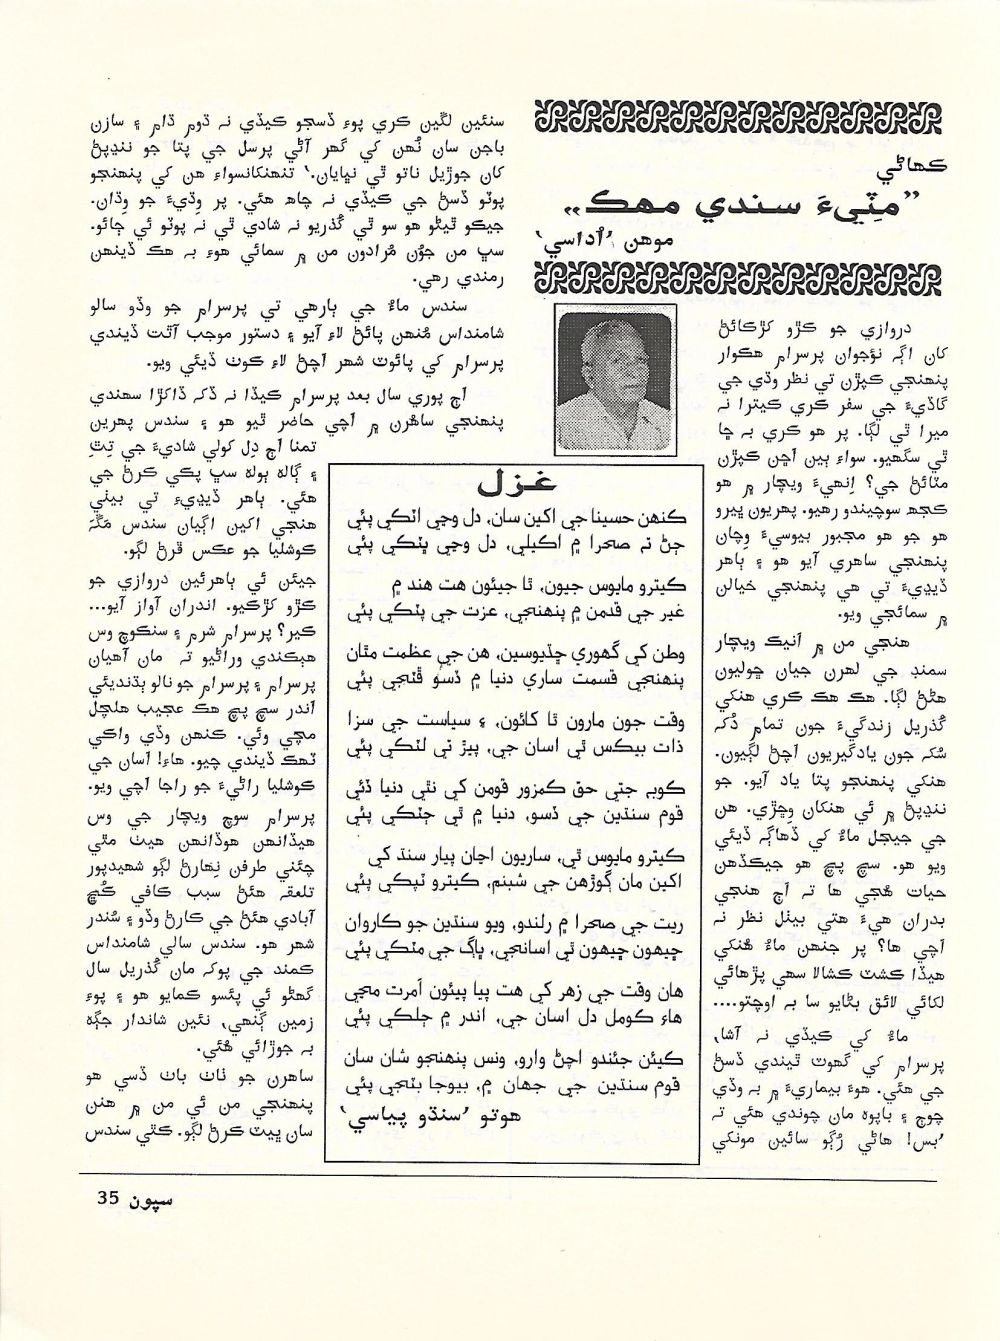 ڪهاڻي
”مٽيءَ سندي مهڪ“
موهن ’اُداسي‘
دروازي جو ڪڙو کڙڪائڻ
کان اڳہ نؤجوان پرسرام هڪوار
پنهنجي ڪپڙن تي نظر وڌي جي
گاڏيءَ جي سفر ڪري ڪيترا نہ
ميرا ٿي لڳا. پر هو ڪري بہ ڇا
ٿي سگهيو. سواءِ ٻين اڇن ڪپڙن
مٽائڻ جي؟ اِنهيءَ ويچار ۾ هو
ڪجهہ سوچيندو رهيو. پهريون ڀيرو
هو جو هو مجبور بيوسيءَ وِچان
پنهنجي ساهري آيو هو ۽ ٻاهر
ڏيڍيءَ تي هي پنهنجي خيالن
۾ سمائجي ويو.
هنجي من ۾ اَنيڪ ويچار
سمنڊ جي لهرن جيان ڇوليون
هڻڻ لڳا. هڪ هڪ ڪري هنکي
گُذريل زندگيءَ جون تمام دُکہ
سُکہ جون يادگيريون اچڻ لڳيون.
هنکي پنهنجو پتا ياد آيو. جو
ننڍپڻ ۾ ئي هنکان وِڇڙي. هن
جي جيجل ماءُ کي ڏهاڳہ ڏيئي
ويو هو. سچ پچ هو جيڪڏهن
حيات هُجي ها تہ اڄ هنجي
بدران هيءَ هتي بيٺل نظر نہ
اچي ها؟ پر جنهن ماءُ هُنکي
هيڏا ڪشٽ ڪشالا سهي پڙهائي
لکائي لائق بڻايو سا بہ اوچتو....
ماءُ کي ڪيڏي نہ آشا،
پرسرام کي گهوٽ ٿيندي ڏسڻ
جي هئي. هوءَ بيماريءَ ۾ بہ وڏي
چوڇ ۽ باپوه مان چوندي هئي تہ
’بس! هاڻي رُڳو سائين مونکي
سنئين لڳين ڪري پوءِ ڏسجو ڪيڏي نہ ڌوم ڌام ۽ سازن
باجن سان نُهن کي گهر آڻي پرسل جي پتا جو ننڍپڻ
کان جوڙيل ناتو ٿي نڀايان.‘ تنهنکانسواءِ هن کي پنهنجو
پوٽو ڏسڻ جي ڪيڏي نہ چاهہ هئي. پر وِڌيءَ جو وِڌان.
جيڪو ٿيڻو هو سو ٿي گُذريو نہ شادي ٿي نہ پوٽو ئي ڄائو.
سڀ من جوُن مُرادون من ۾ سمائي هوءَ بہ هڪ ڏينهن
رمندي رهي.
سندس ماءُ جي ٻارهي تي پرسرام جو وڏو سالو
شامنداس مُنهن پائڻ لاءِ آيو ۽ دستور موجب آٿت ڏيندي
پرسرام کي پاڻوٽ شهر اچڻ لاءِ ڪوٺ ڏيئي ويو.
اڄ پوري سال بعد پرسرام ڪيڏا نہ ڏکہ ڏاکڙا سهندي
پنهنجي ساهُرن ۾ اچي حاضر ٿيو هو ۽ سندس پهرين
تمنا اڄ دِل کولي شاديءَ جي تِٿِ
۽ ڳالهہ ٻولهہ سڀ پڪي ڪرڻ جي
هئي. ٻاهر ڏيڍيءَ تي بيٺي
هنجي اکين اڳيان سندس مَڱَہَ
ڪوشليا جو عڪس ڦرڻ لڳو.
جيئن ئي ٻاهرئين دروازي جو
ڪڙو کڙڪيو. اندران آواز آيو...
ڪير؟ پرسرام شرم ۽ سنڪوچ وس
هٻڪندي وراڻيو تہ مان آهيان
پرسرام ۽ پرسرام جو نالو ٻڌنديئي
اَندر سچ پچ هڪ عجيب هلچل
مچي وئي. ڪنهن وڏي واڪي
ٽهڪ ڏيندي چيو. هاءِ! اَسان جي
ڪوشليا راڻيءَ جو راجا اچي ويو.
پرسرام سوچ ويچار جي وس
هيڏانهن هوڏانهن هيٺ مٿي
چئني طرفن نِهارڻ لڳو شهيدپور
تلعقہ هئڻ سبب ڪافي گُچ
آبادي هئڻ جي ڪارڻ وڏو ۽ سُندر
شهر هو. سندس سالي شامنداس
ڪمند جي پوکہ مان گُذريل سال
گهڻو ئي پئسو ڪمايو هو ۽ پوءِ
زمين ڳنهي، نئين شاندار جڳہ
بہ جوڙائي هُئي.
ساهرن جو ٺاٺ باٺ ڏسي هو
پنهنجي من ئي من ۾ هنن
سان ڀيٽ ڪرڻ لڳو. ڪٿي سندس
غزل
ڪنهن حسينا جي اکين سان، دل وڃي اٽڪي پئي
ڄڻ تہ صحرا ۾ اڪيلي، دل وڃي ڀٽڪي پئي
ڪيترو مايوس جيون، ٿا جيئون هت هند ۾
غير جي قدمن ۾ پنهنجي، عزت جي پٽڪي پئي
وطن کي گهوري ڇڏيوسين، هن جي عظمت مٿان
پنهنجي قسمت ساري دنيا ۾ ڏسو ڦٽجي پئي
وقت جون مارون ٿا کائون، ۽ سياست جي سزا
ذات بيڪس ٿي اسان جي، پيڙ تي لٽڪي پئي
ڪوبہ جتي حق ڪمزور قومن کي نٿي دنيا ڏئي
قوم سنڌين جي ڏسو، دنيا ۾ ٿي ڇٽڪي پئي
ڪيترو مايوس ٿي، ساريون اڃان پيار سنڌ کي
اکين مان ڳوڙهن جي شبنم، ڪيترو ٽپڪي پئي
ريت جي صحرا ۾ رلندو، ويو سنڌين جو ڪاروان
ڇيهون ڇيهون ٿي اسانجي، ڀاڳ جي مٽڪي پئي
هاڻ وقت جي زهر کي هت پيا پيئون اَمرت مڃي
هاءِ ڪومل دل اسان جي، اندر ۾ جلڪي پئي
ڪيئن جئندو اچڻ وارو، ونس پنهنجو شان سان
قوم سنڌين جي جهان ۾، بيوجا بڻجي پئي
هوتو ’سنڌو پياسي‘
سپون 35